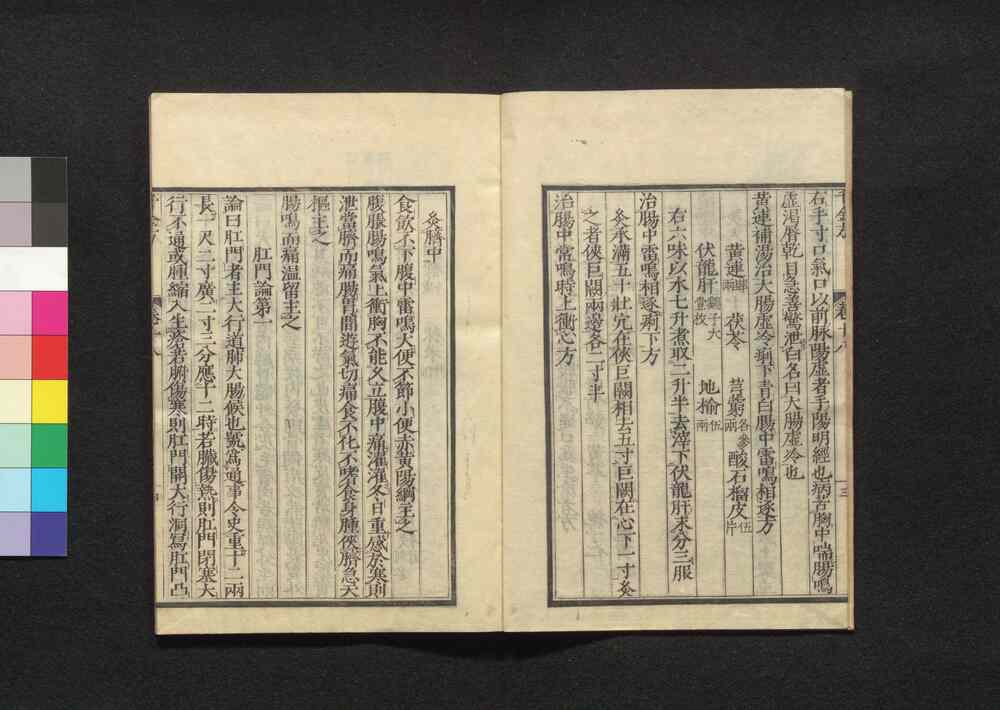 右手寸口氣口以前脉陽虚者手陽明經也病苦胸中喘腸鳴
虚渇脣乾目急善驚泄白名曰大腸虚冷也
黄連補湯治大腸虚冷痢下青白腸中雷鳴相逐方
黄連四兩 茯苓 芎藭各三兩 酸石榴皮伍片
伏龍肝鷄子大壹枚 地榆伍兩
右六味以水七升煮取二升半去滓下伏龍肝末分三服
治腸中雷鳴相逐痢下方
灸承滿五十壯穴在俠巨闕相去五寸巨闕在心下一寸灸
之者俠巨闕兩邊各二寸半
治腸中常鳴時上衝心方
灸臍中
食飲不下腹中雷鳴大便不節小便赤黄陽綱主之
腹脹腸鳴氣上衝胸不能久立腹中痛濯濯冬日重感於寒則
泄當臍而痛腸胃間遊氣切痛食不化不嗜食身腫俠臍急天
樞主之
腸鳴而痛温留主之
肛門論第一
論曰肛門者主大行道肺大腸候也號爲通事令史重十二兩
長一尺二寸廣二寸二分應十二時若臟傷熱則肛門閉塞大
行不通或腫縮入生瘡若腑傷寒則肛門開大行洞寫肛門凸